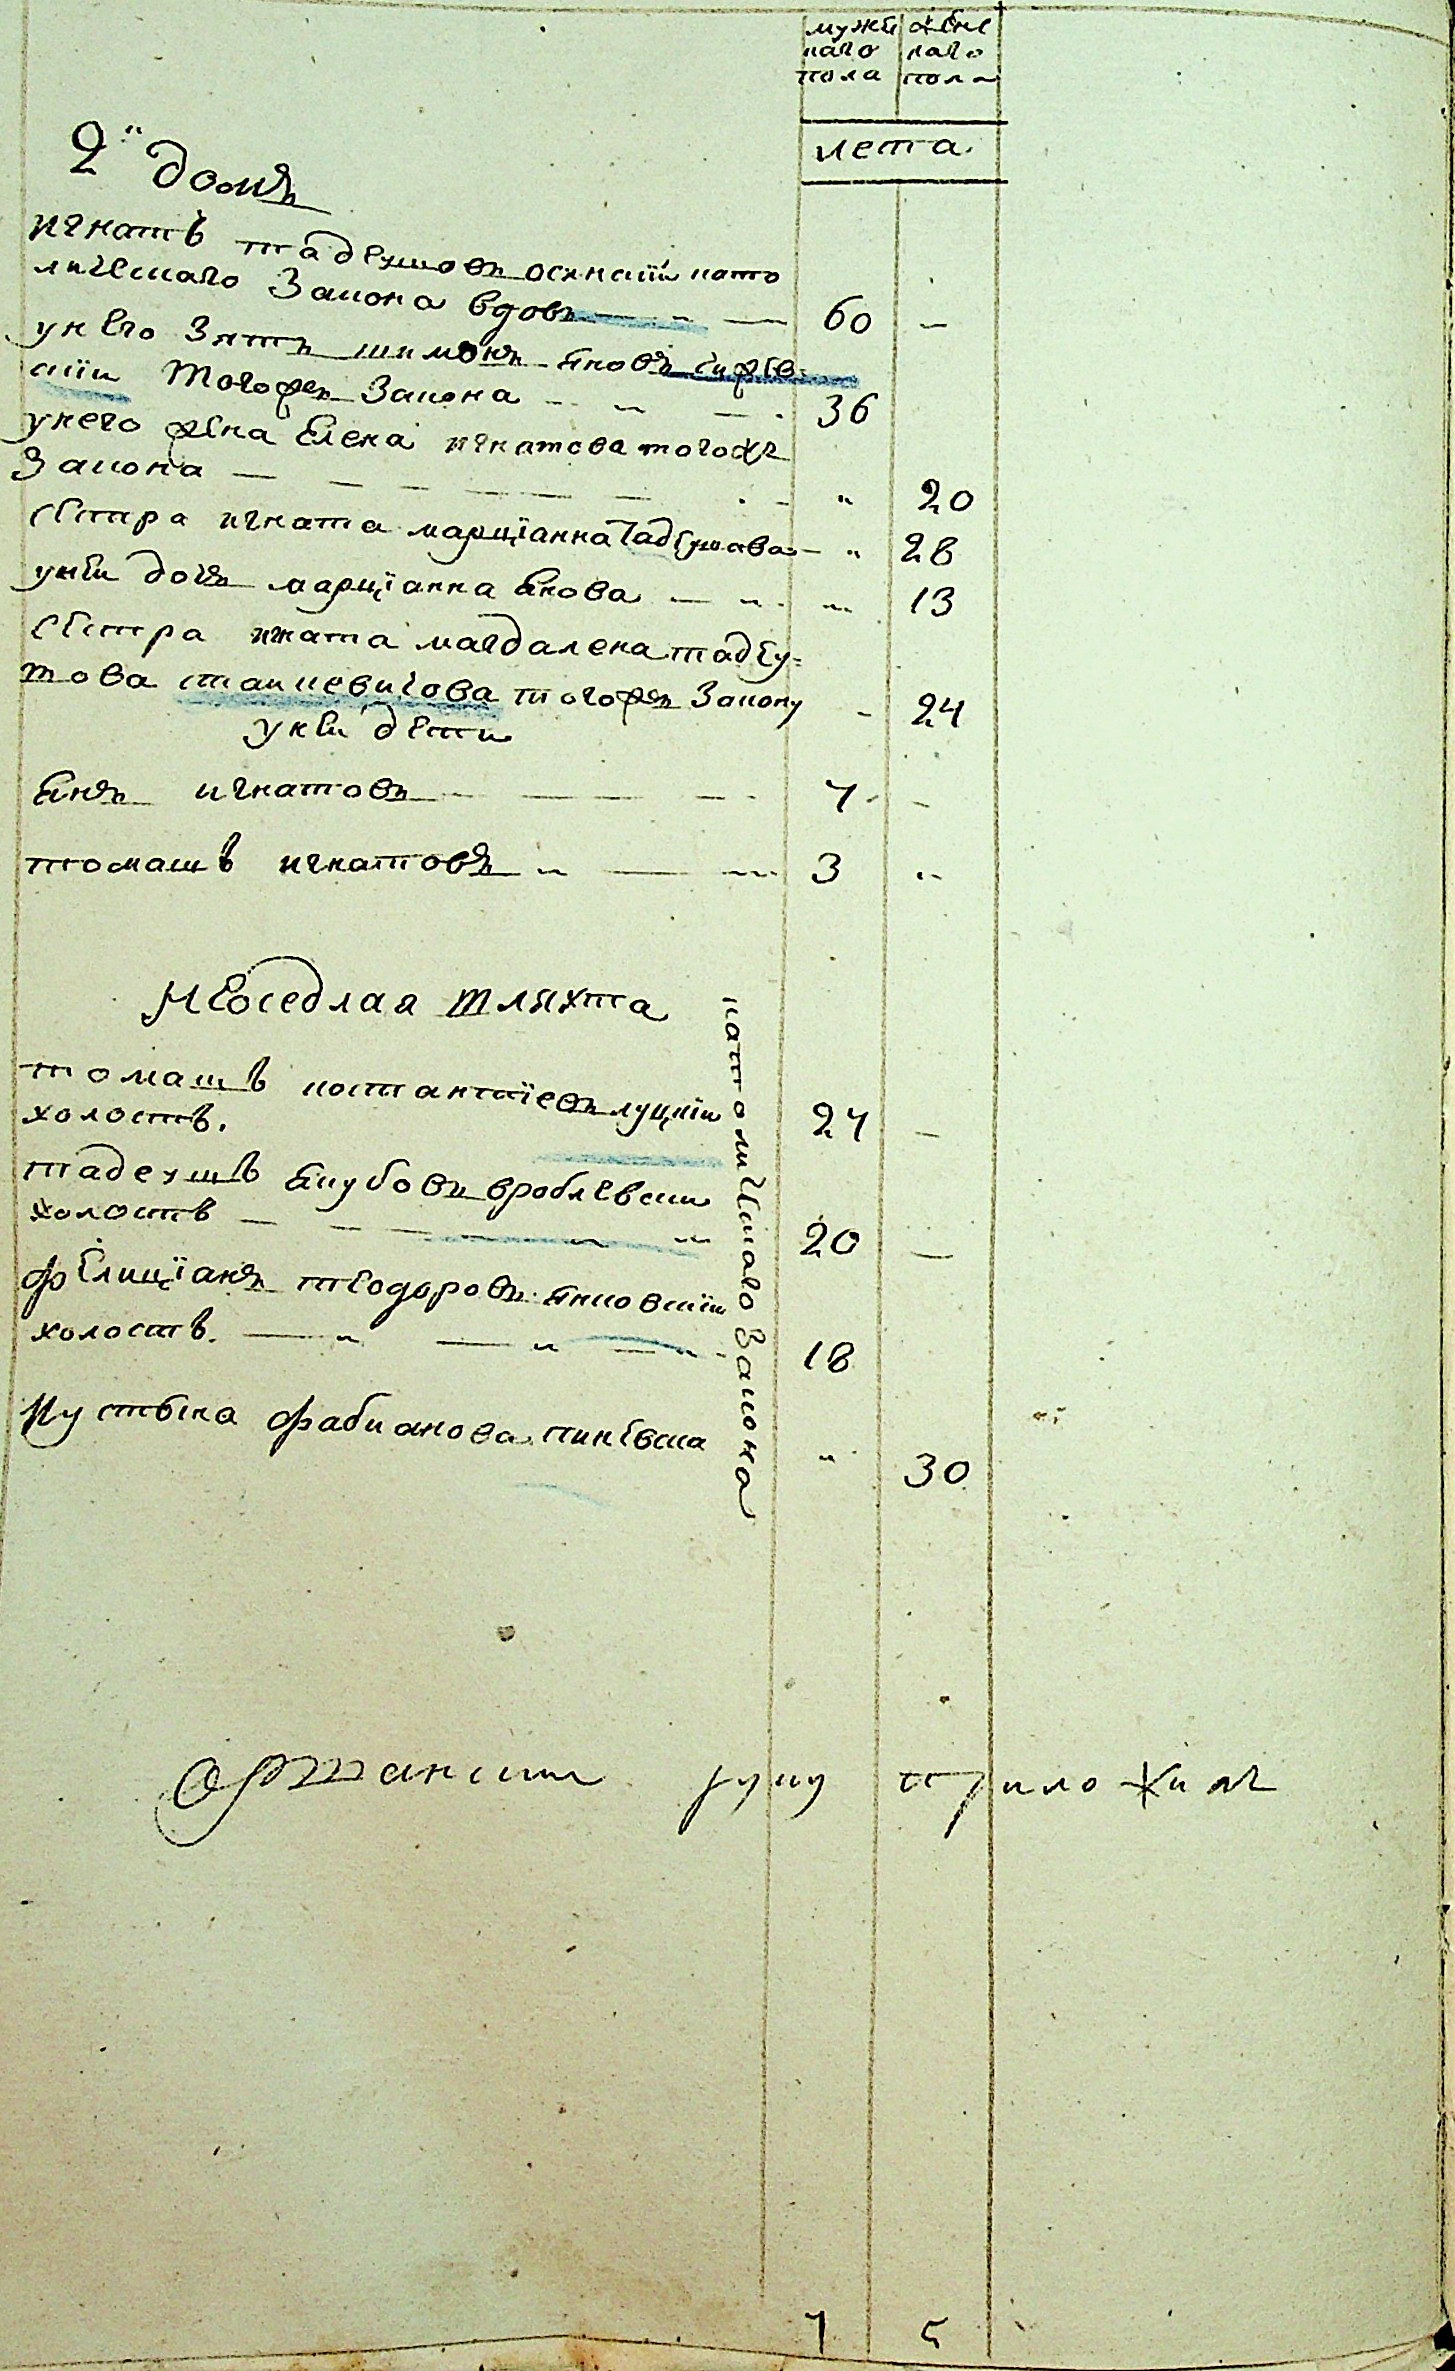 мужс женс
каго каго
пола пола
лета.
2й домъ
игнатъ тадеушовъ осинскїй като
лическаго Закона вдовъ — „ — 60 —
у него Зять шимонъ яновъ
скїи тогожъ Закона — „ — 36
у него жена елена игнатова тогожъ
Закона — — — — — „ 20
сестра игната марцїанна Тадеушова — „ 28
у неи дочь марцїанна янова — „ „ 13
сестра игната магдалена тадеу-
това станкевичова тогожъ Закону - 24
у неи дети
янъ игнатовъ — — — 4 -
томашъ игнатовъ „ — „ 3 „
неоседлая шляхта
томашъ костантїевъ луцкїи
холостъ. 24 —
тадеушъ якубовъ вроблевски
холостъ — — — „ „ 20 —
фелицїанъ теодоровъ янковскїи
холостъ. — „ — „ — „ 18
Юстына фабианова
„ 30
католическаго Закона
руку приложилъ
7 5